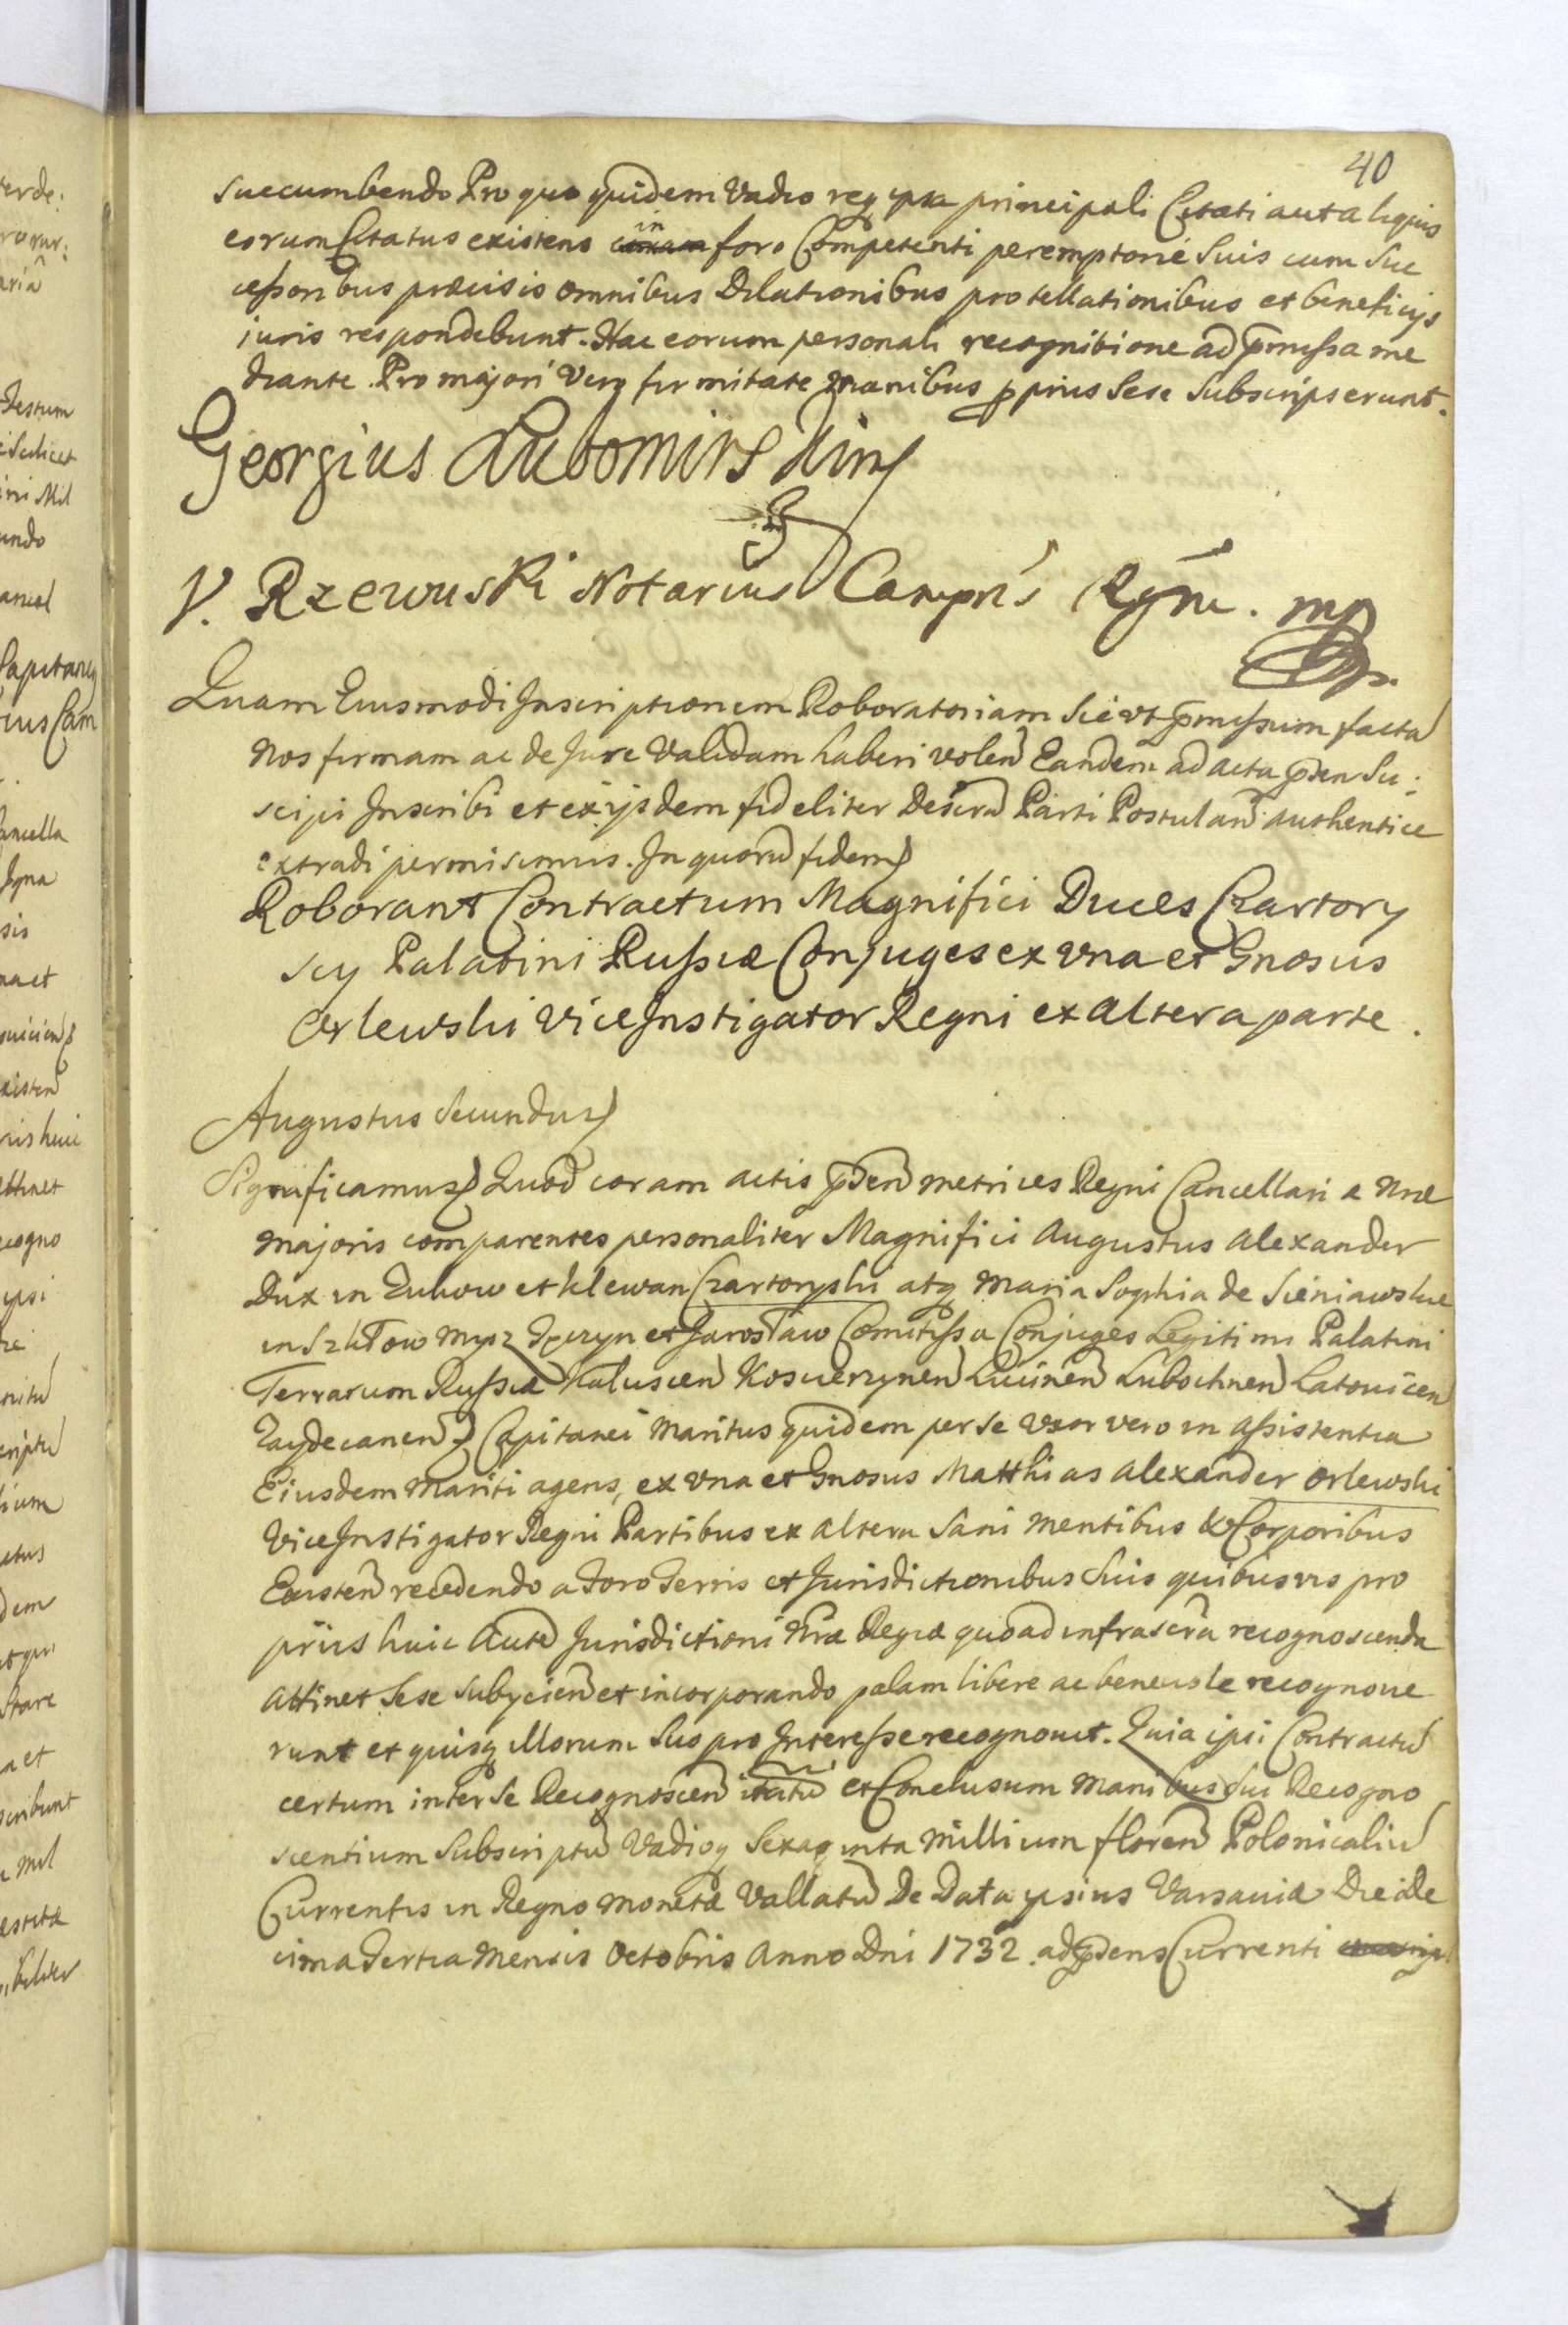 40
succumbendo Pro quo quidem Vadio req ipsa principali Citati aut aliquis
eorum Citatus existens in foro Competenti peremptorie Suis cum Suc
cessoribus præcisis omnibus Dilationibus protellationibus et beneficijs
juris respondebunt. Hac eorum personali recognitione ad pmissa me
diante. Pro majori Vero firmitate Manibus pprius Sese Subscripserunt.
Georgius Lubomirski mp
V. Rzewuski Notarius Campris Rgni. mp
Quam Eiusmodi Inscriptionem Roboratoriam Sicut pmissum facta
Nos firmam ac de Jure Validam haberi volen Eandem ad acta pden Su:
scipi Inscribi et ex ijsdem fideliter Descra Parti Postulan authentice
extradi permisimus. In quoru fidem
Roborant Contractum Magnifici Duces Czartory
scy Palatini Russiæ Conjuges ex Vna et Gnosus
Orlewski ViceInstigator Regni ex altera parte.
Augustus Secundus
Significamus Quod coram actis pden metrices Regni Cancellari a Nræ
Majoris comparentes personaliter Magnifici Augustus Alexander
Dux in Zukow et Klewan Czartoryski atq Maria Sophia de Sieniawskie
in Szkłow Mysz et Jarosław Comitissa Conjuges Legitimi Palatini
Terrarum Russiæ Kaluscen Koscierzynen Lucinen Lubochnen Latovicen
Capitanei Maritus quidem per se Vxor vero in assistentia
Eiusdem Mariti agens, ex Vna et Gnosus Matthias Alexander Orlewski
ViceInstigator Regni Partibus ex altera Sani mentibus & Corporibus
Existen recedendo a Foro Terris et Jurisdictionibus Suis quibusvis pro
priis huic Aute Jurisdictioni Nræ Regiæ quoad infrascra recognoscenda
attinet Sese subijcien et incorporando palam libere ac benevole recognove
runt et quisq illorum Suo pro Interesse recognovit. Quia ipsi Contractu
certum inter Se Recognoscen itatu et Conclusum manibus Sui Recogno
scentium Subscriptu Vadioq Sexaginta Millium floren Polonicaliu
Currentis in Regno Monetæ Vallatu De Data ipsius Varsaviæ Die de
cima Tertia Mensis Octobris Anno Dni 1732. ad pdens Currenti